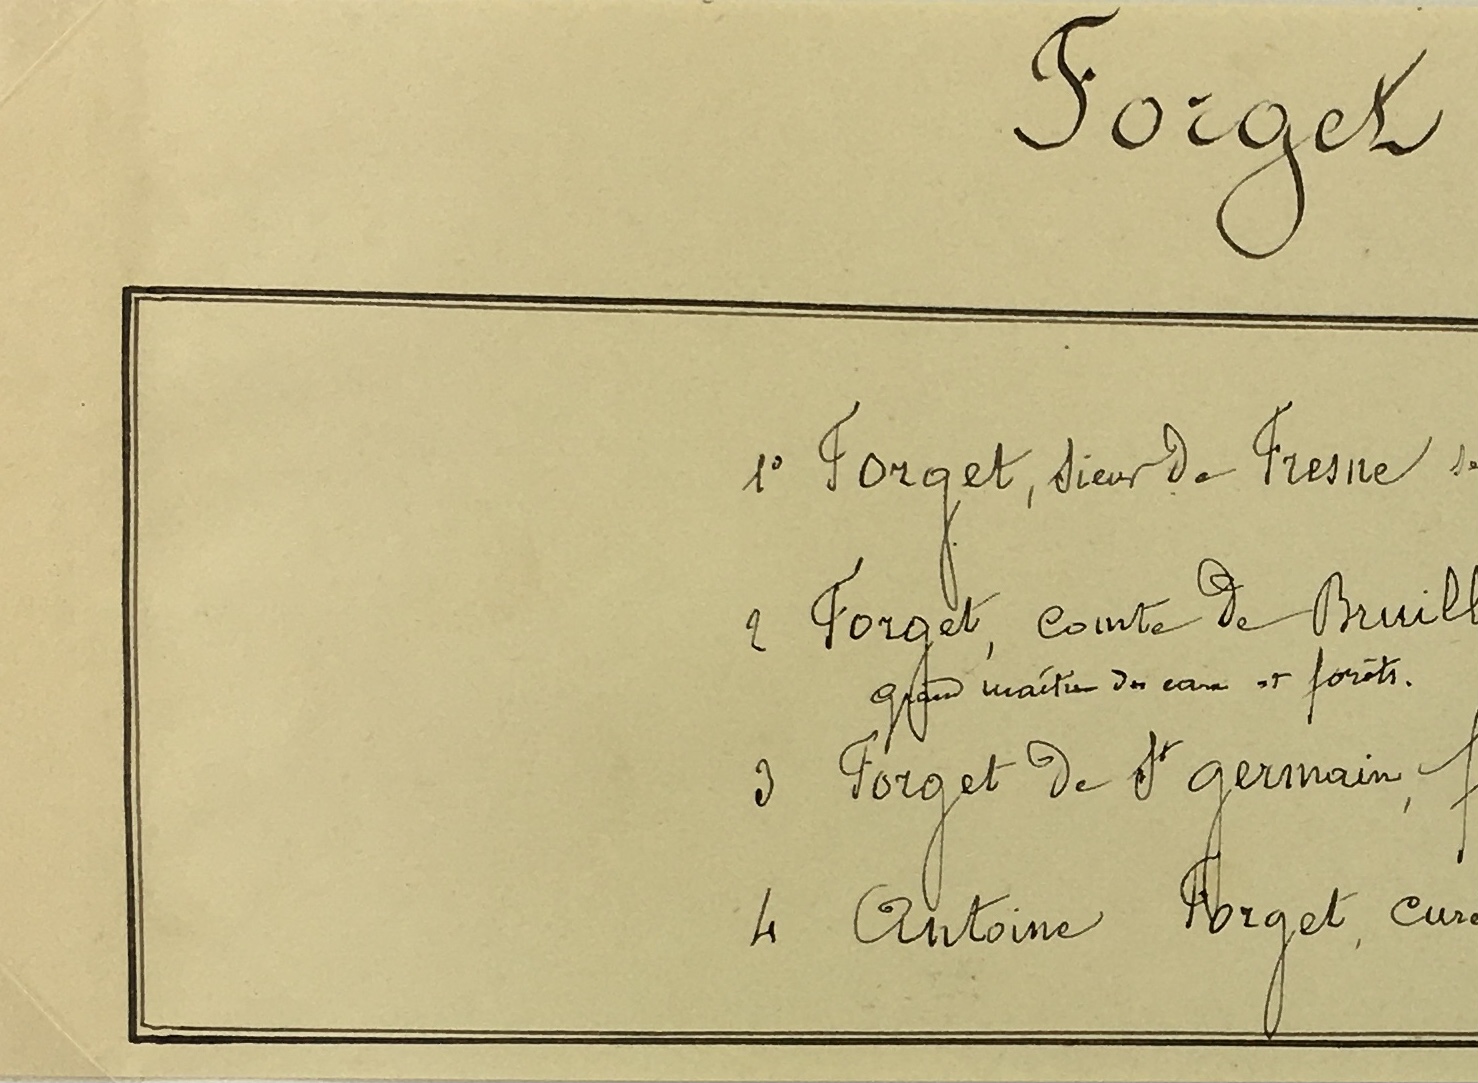 Forget
1° Forget, sieur de Fresne se
2 Forget, comte de Bruill
grand maître des eaux et forêts.
3 Forget de St germain, f
4 Antoine Forget, cure